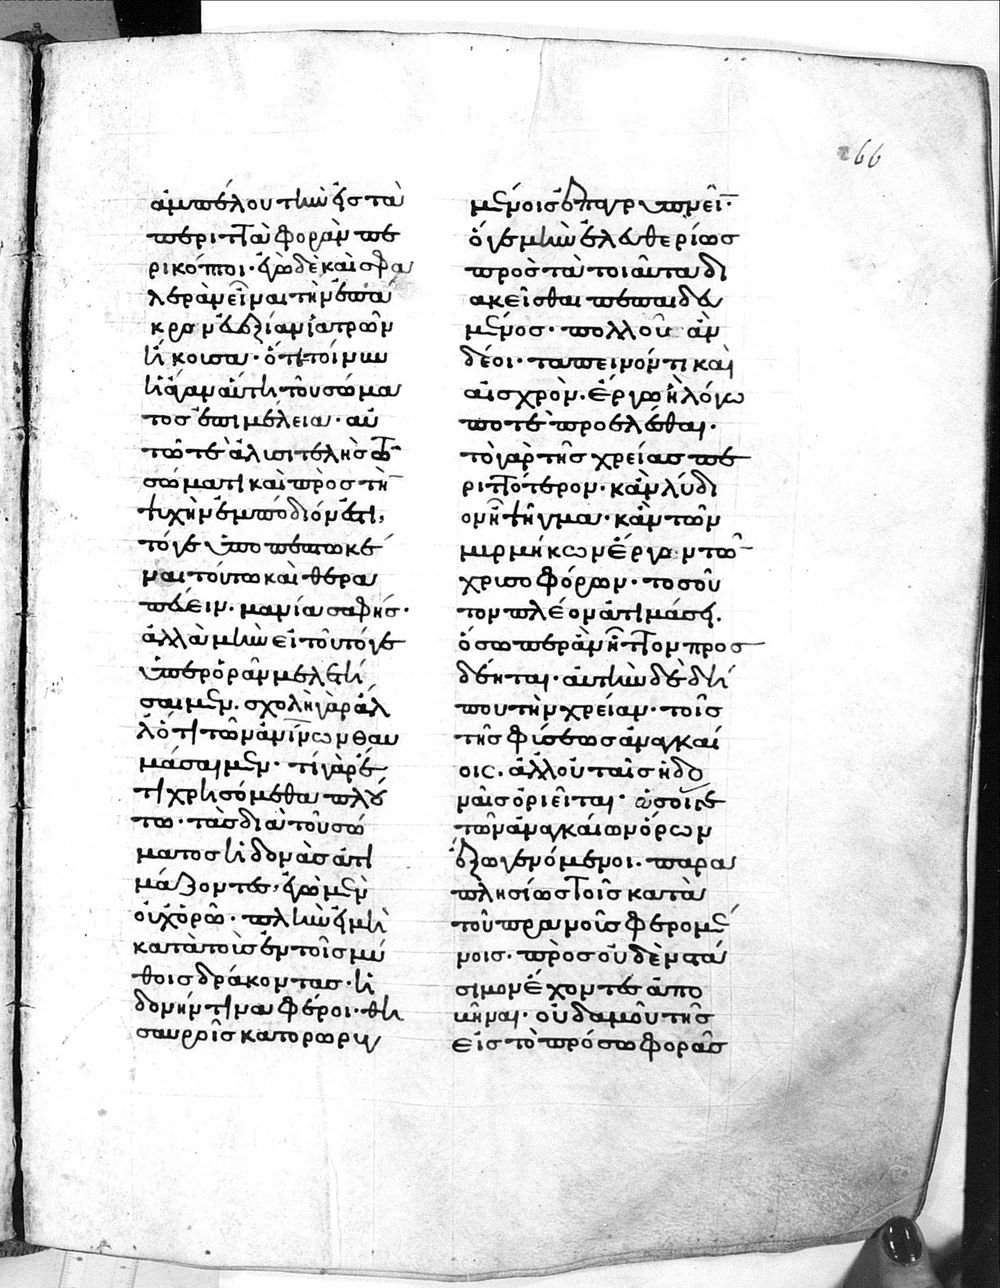 ἀμπέλου τὴν ἐς τὰ
περιττὰ φορὰν πε
ρικόπτοι· ἐγὼ δὲ καὶ σφα
λερὰν εἶναι τὴν ἐπ' ἄ
κρον εὐεξίαν ἰατρῶν
ἤκουσα· ὅτε τοίνυν
ἡ ἄγαν αὕτη τοῦ σώμα
τος ἐπιμέλεια· αὐ
τῶ τε ἀλυσιτελὴς τῶ
σώματι καὶ πρὸς τὴν
ψυχὴν ἐμπόδιόν ἐστι,
τό γε ὑποπεπτωκέ
ναι τούτω καὶ θερα
πεύειν· μανία σαφής·
ἀλλὰ μὴν εἰ τούτου γε
ὑπερορᾶν μελετή
σαιμεν· σχολῆ γὰρ ἂν ἄλ
λό τι τῶν ἀνθρωπίνων θαυ
μάσαιμεν· τί γὰρ ἔ
τι χρησόμεθα πλού
τω· τὰς διὰ τοῦ σώ
ματος ἡδονὰς ἀτι
μάζοντες, ἐγὼ μὲν
οὐχ ὁρῶ· πλὴν εἰ μὴ
κατὰ τοὺς ἐν τοῖς μύ
θοις δράκοντας· ἡ
δονήν τινα φέροι· θη
σαυροῖς κατορωρυγ
μένοις ἐπαγρυπνεῖν·
ὅ γε μὴν ἐλευθερίως
πρὸς τὰ τοιαῦτα δι
ακεῖσθαι πεπαιδευ
μένος· πολλοῦ ἂν
δέοι· ταπεινόν τι καὶ
αἰσχρὸν· ἔργω ἢ λόγω
ποτὲ προελέσθαι·
τὸ γὰρ τῆς χρείας πε
ριττότερον· κἂν λύδι
ον ἦ ψῆγμα· κἂν τῶν
μυρμήκων ἔργον τῶν
χρυσοφόρων· τοσού
τον πλέον ἀτιμάσει·
ὅσωπερ ἂν ἧττον προσ
δέηται· αὐτὴν δὲ δή
που τὴν χρείαν· τοῖς
τῆς φύσεως ἀναγκαί
οις· ἀλλ' οὐ ταῖς ἡδο
ναῖς ὁριεῖται· ὡς οἵ γε
τῶν ἀναγκαίων ὅρων
ἔξω γενόμενοι· παρα
πλησίως τοῖς κατὰ
τοῦ πρανοῦς φερομέ
νοις· πρὸς οὐδὲν στά
σιμον ἔχοντες ἀπο
βῆναι· οὐδαμοῦ τῆς
εἰς τὸ πρόσω φορᾶς